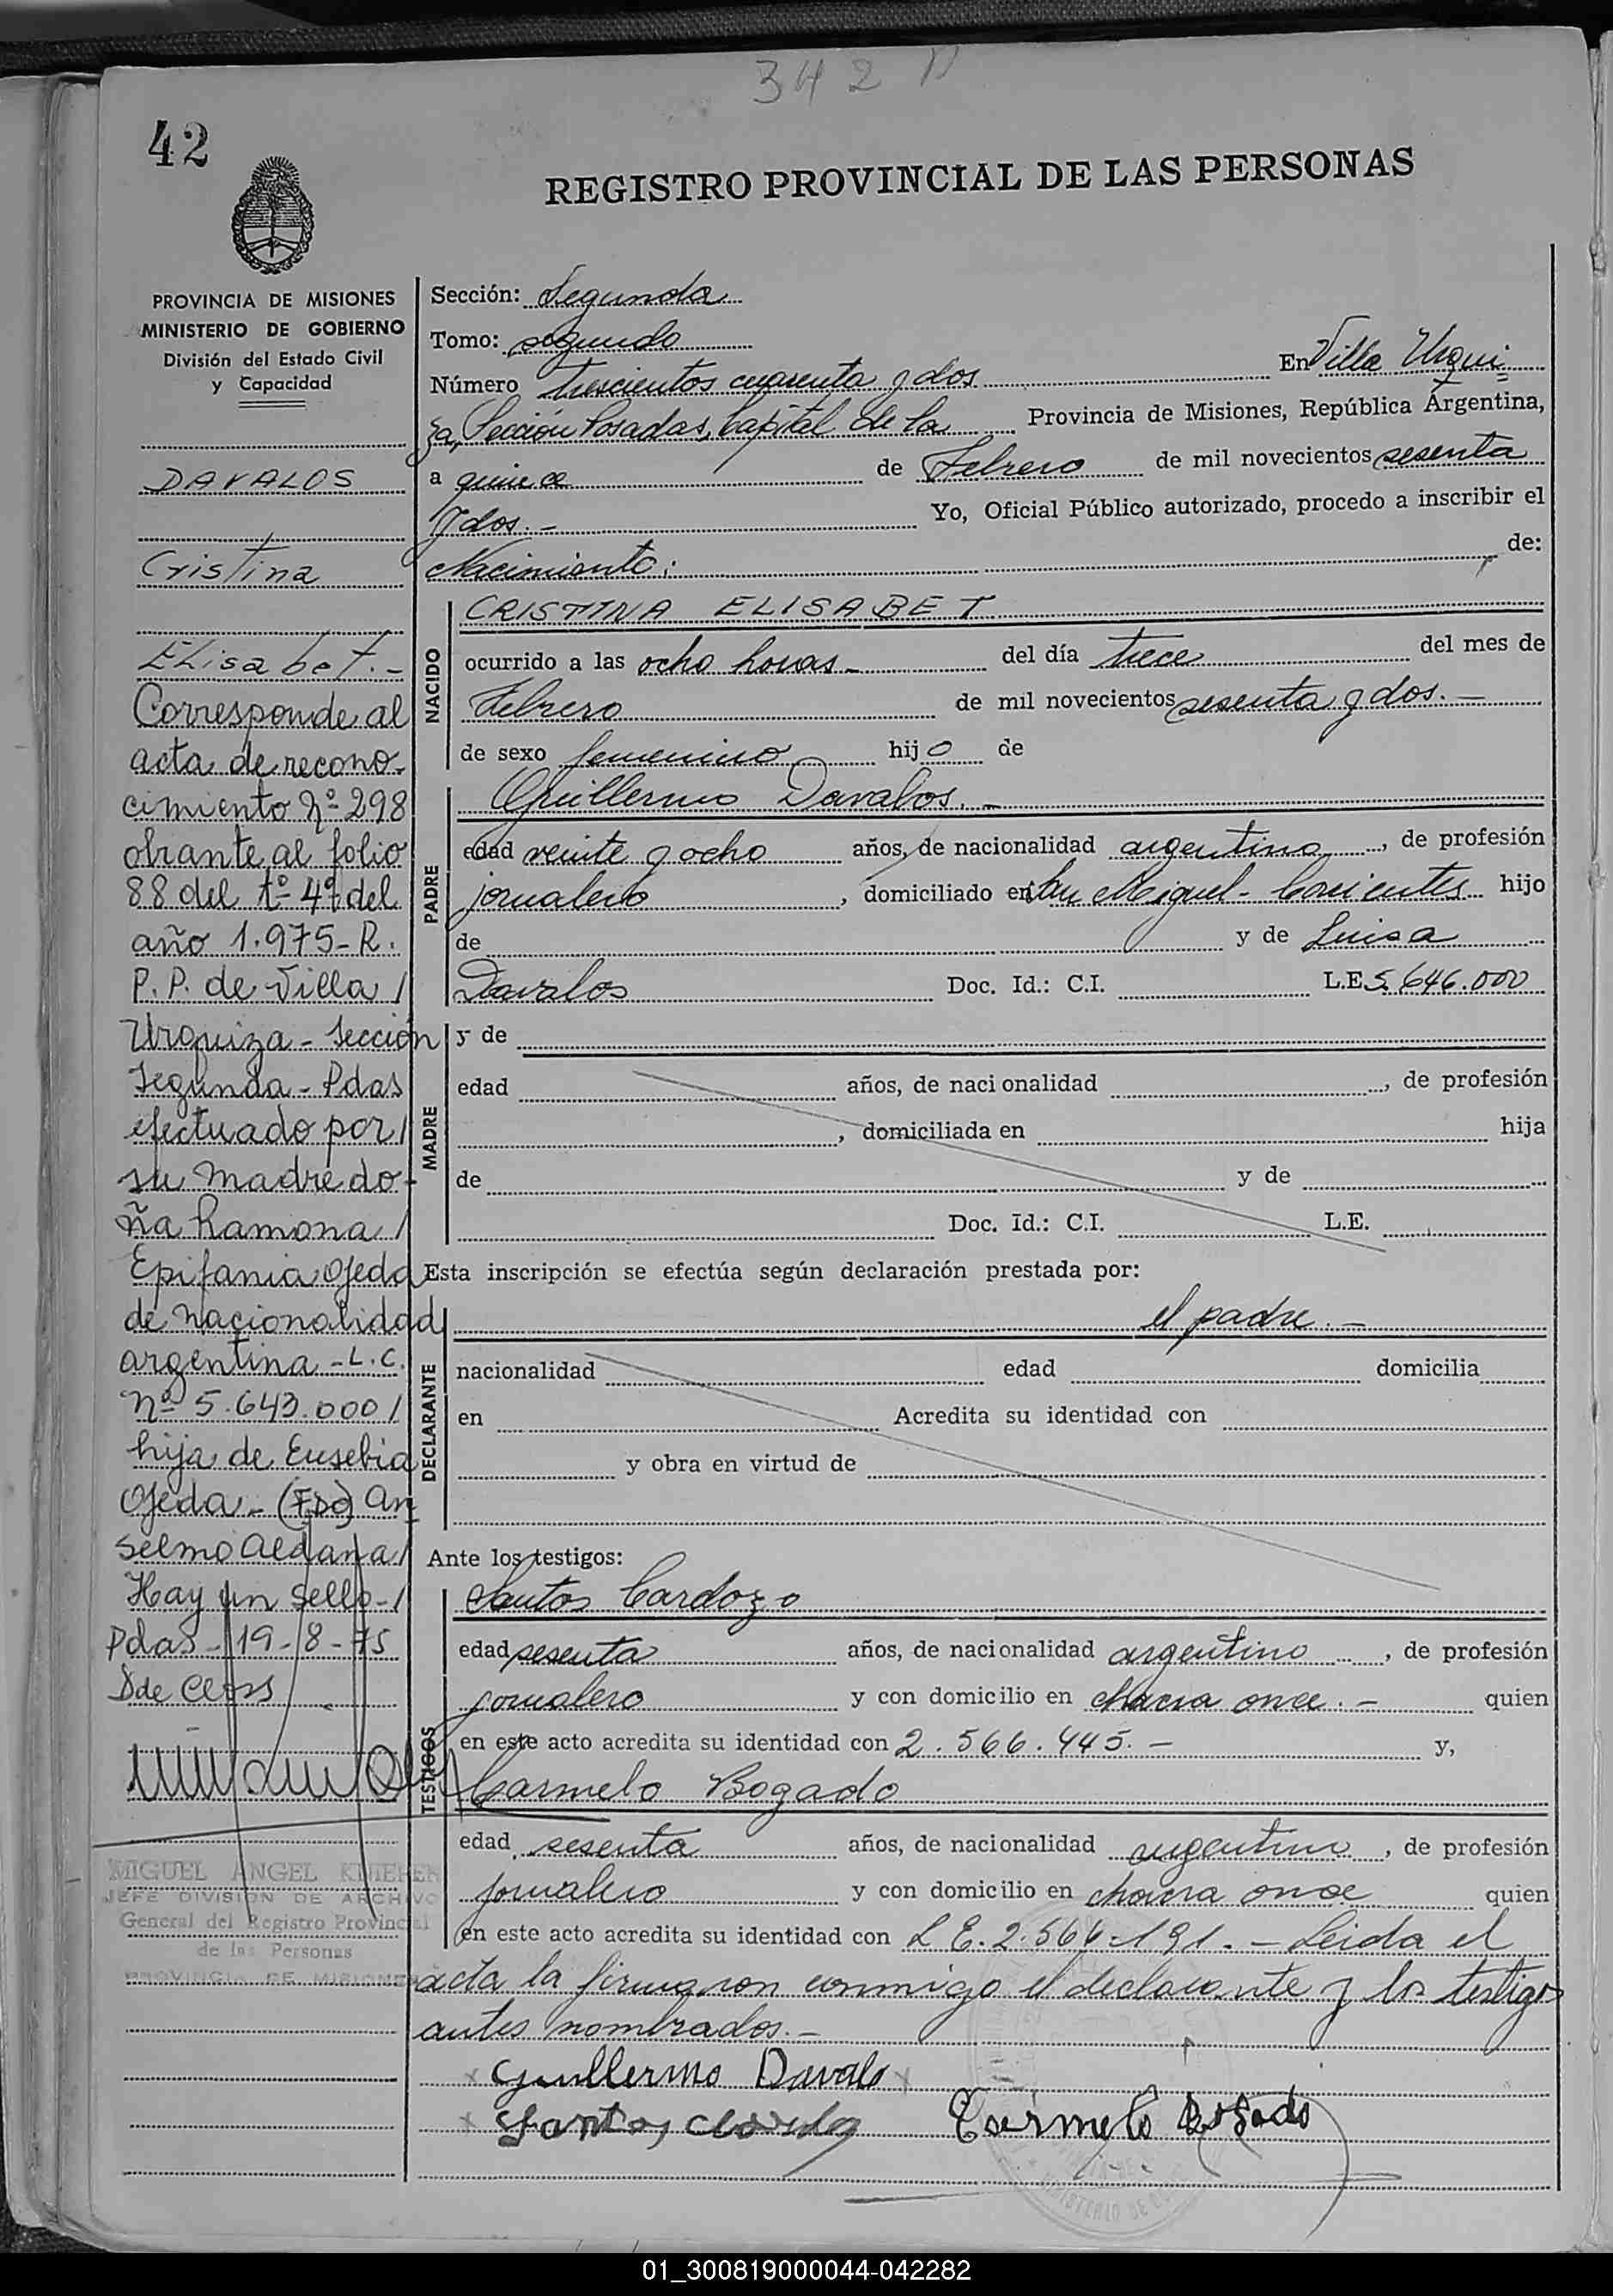 342
42
REGISTRO PROVINCIAL DE LAS PERSONAS
PROVINCIA DE MISIONES
MINISTERIO DE GOBIERNO
División del Estado Civil
y Capacidad
DAVALOS
Cristina
Elisabet.-
Corresponde al
acta de recono-
cimiento Nº 298
obrante al folio
88 del tº 4º del
año 1.975-R.
P.P. de Villa /
Urquiza - Sección
Segunda - Pdas
efectuado por /
su madre do-
ña Ramona /
Epifania Ojeda
de nacionalidad
argentina - L.C.
Nº 5.643.000 /
hija de Eusebia
Ojeda - (Fdo) An-
selmo Aldana /
Hay un sello - /
Pdas - 19-8-75
MIGUEL ANGEL
JEFE DIVISION DE ARCHIVO
General del Registro Provincial
de las Personas
PROVINCIA DE MISIONES
Sección: Segunda
Tomo: segundo
Número trescientos cuarenta y dos En Villa Urqui=
za, Sección Posadas, Capital de la Provincia de Misiones, República Argentina,
a quince de Febrero de mil novecientos sesenta
y dos.- Yo, Oficial Público autorizado, procedo a inscribir el
Nacimiento: de:
NACIDO
CRISTINA ELISABET
ocurrido a las ocho horas- del día trece del mes de
Febrero de mil novecientos sesenta y dos.-
de sexo femenino hijo de
PADRE
Guillermo Davalos.-
edad veinte y ocho años, de nacionalidad argentino, de profesión
jornalero, domiciliado en San Miguel - Corrientes hijo
de y de Luisa
Davalos Doc. Id.: C.I. L.E. 5.646.000
MADRE
y de
edad años, de nacionalidad , de profesión
, domiciliada en hija
de y de
Doc. Id.: C.I. L.E.
Esta inscripción se efectúa según declaración prestada por:
DECLARANTE
el padre.-
nacionalidad edad domicilia
en Acredita su identidad con
y obra en virtud de
Ante los testigos:
TESTIGOS
Santos Cardozo
edad sesenta años, de nacionalidad argentino, de profesión
jornalero y con domicilio en chacra once.- quien
en este acto acredita su identidad con 2.566.445.- y,
Carmelo Bogado
edad sesenta años, de nacionalidad argentino, de profesión
jornalero y con domicilio en chacra once quien
en este acto acredita su identidad con L.E. 2.566-191.- Leida el
acta la firmaron conmigo el declarante y los testigos
antes nombrados.-
Guillermo Davalo
Santos Carmelo Bogado
01_300819000044-042282